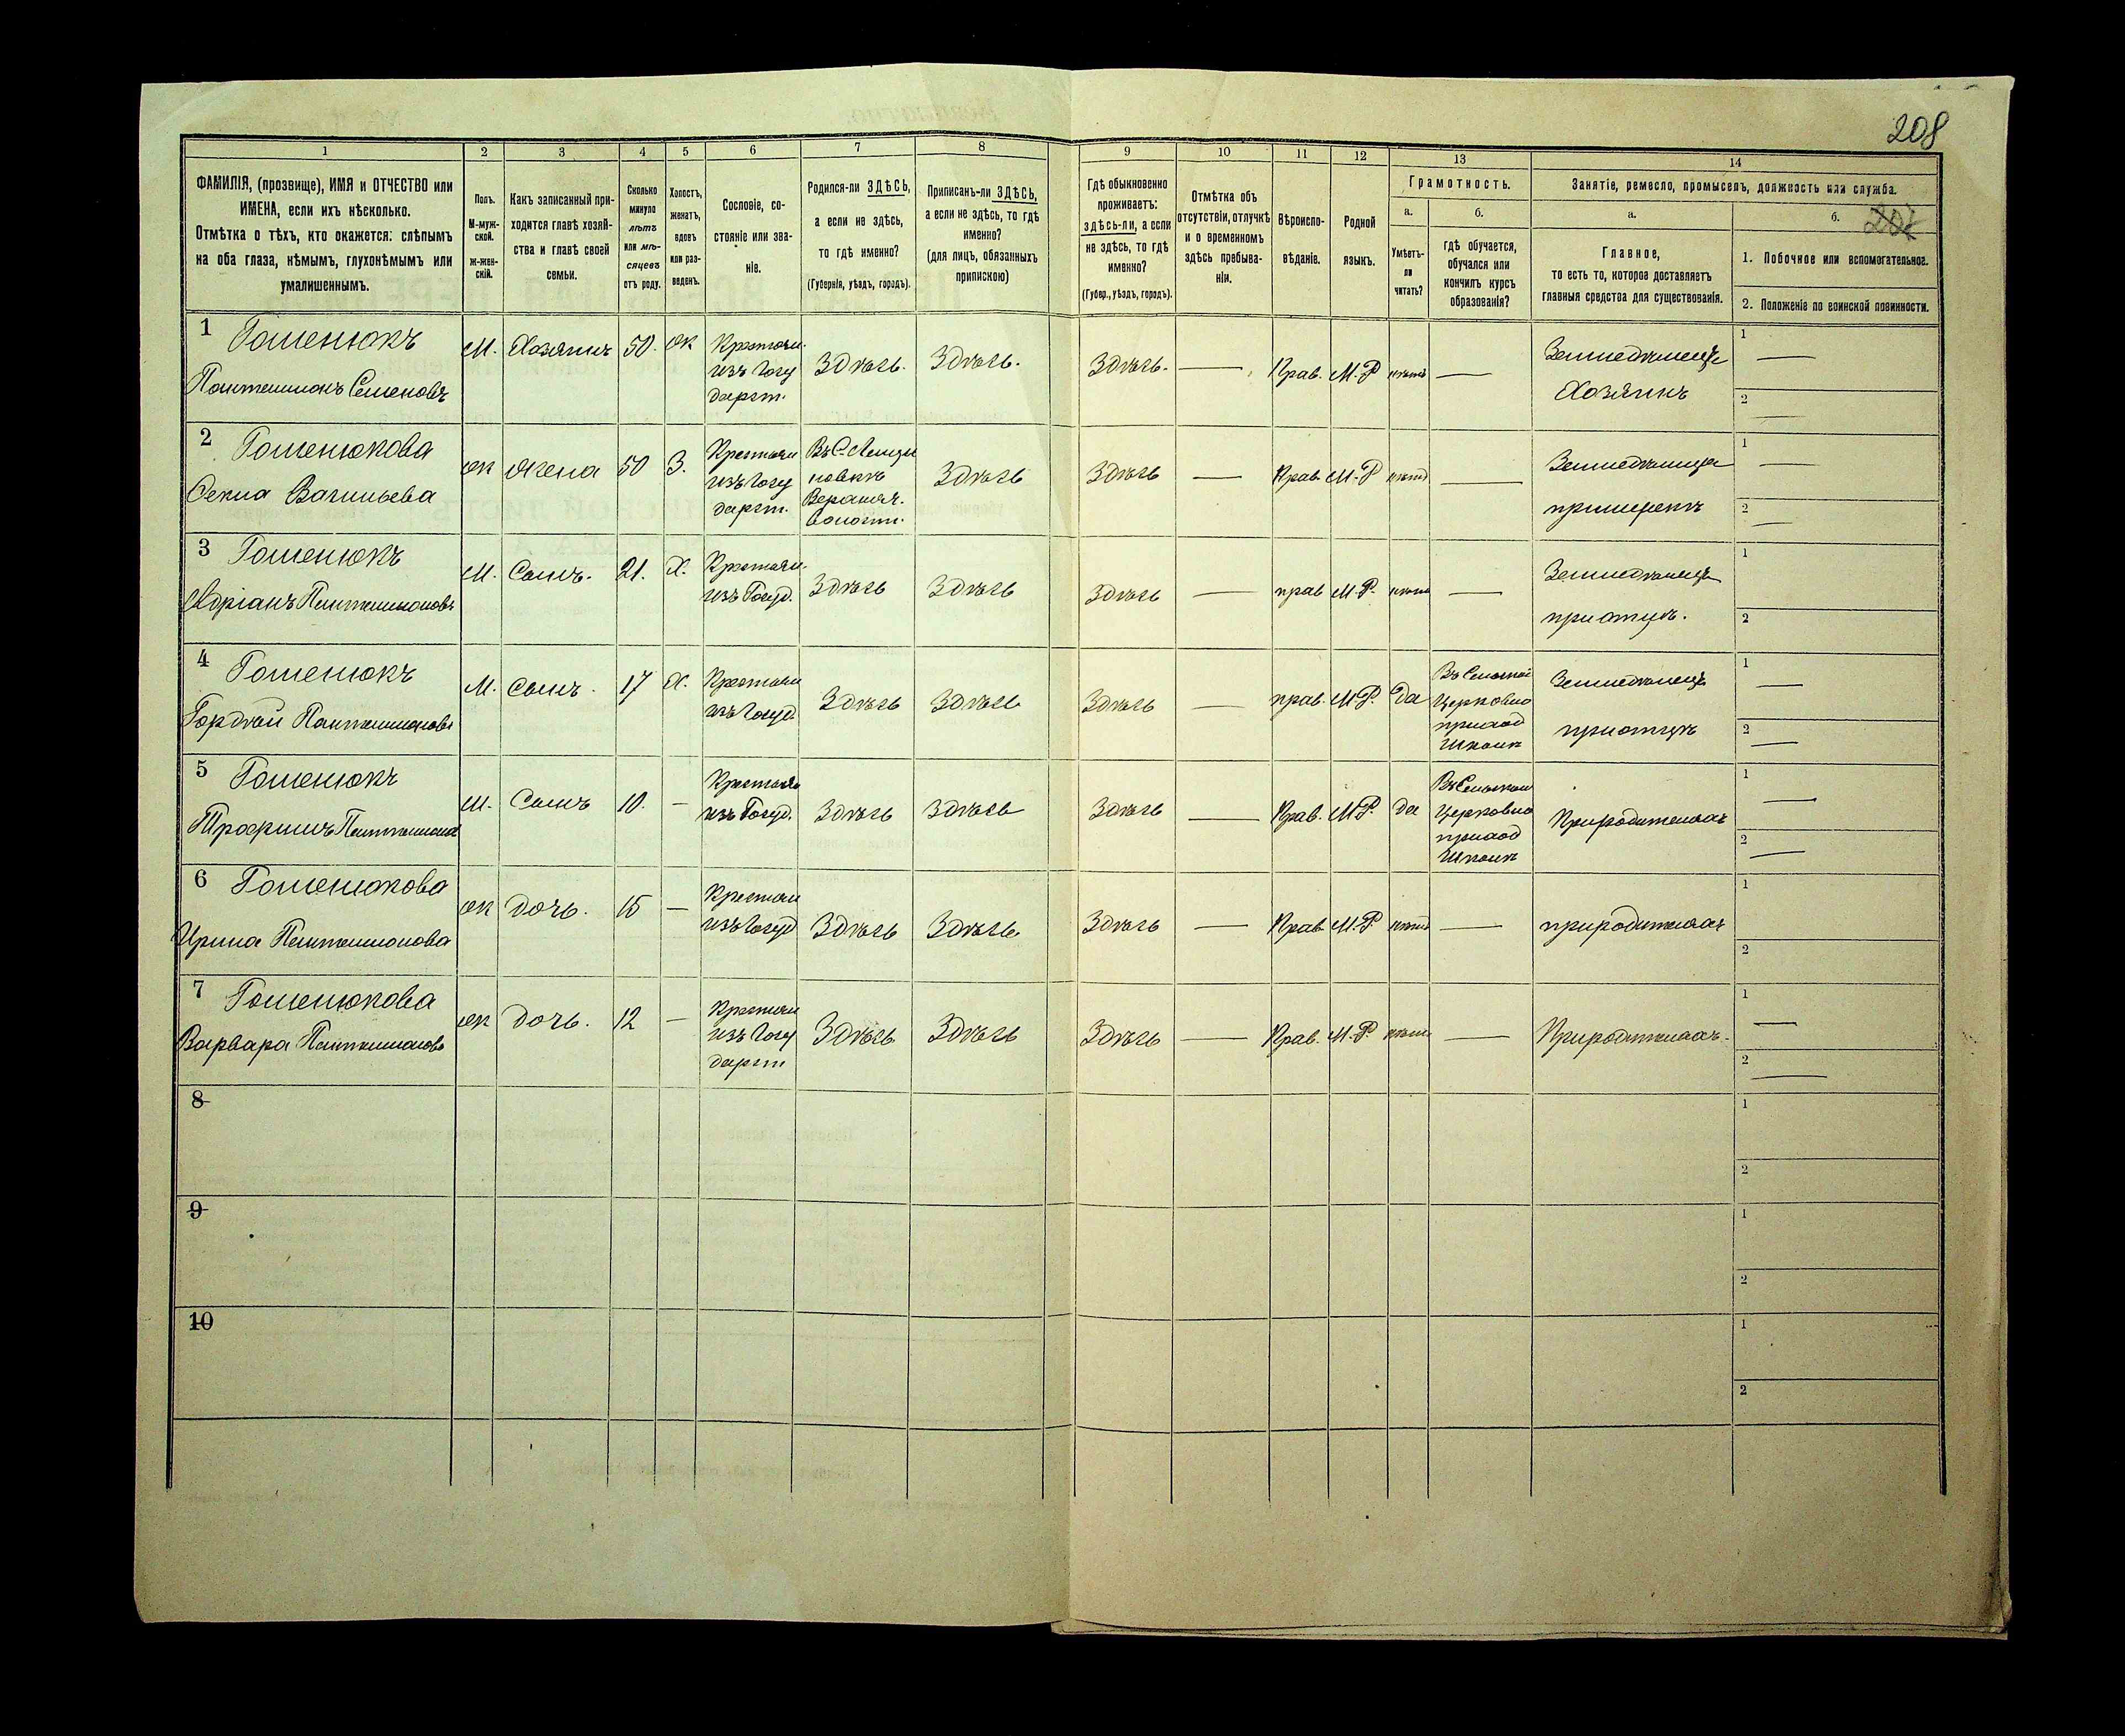 208
1 2 3 4 5 6 7 8 9 10 11 12 13 14
ФАМИЛІЯ, (прозвище), ИМЯ и ОТЧЕСТВО или
ИМЕНА, если ихъ нѣсколько.
Отмѣтка о тѣхъ, кто окажется: слѣпымъ
на оба глаза, нѣмымъ, глухонѣмымъ или
умалишеннымъ.
Полъ.
М-муж-
ской.
ж-жен-
скій.
Какъ записанный при-
ходится главѣ хозяй-
ства и главѣ своей
семьи.
Сколько
минуло
лѣтъ
или мѣ-
сяцевъ
отъ роду.
Холостъ,
женатъ,
вдовъ
или раз-
веденъ.
Сословіе, со-
стояніе или зва-
ніе.
Родился-ли ЗДѢСЬ,
а если не здѣсь,
то гдѣ именно?
(Губернія, уѣздъ, городъ).
Приписанъ-ли ЗДѢСЬ,
а если не здѣсь, то гдѣ
именно?
(для лицъ, обязанныхъ
припискою)
Гдѣ обыкновенно
проживаетъ:
здѣсь-ли, а если
не здѣсь, то гдѣ
именно?
(Губер., уѣздъ, городъ).
Отмѣтка объ
отсутствіи, отлучкѣ
и о временномъ
здѣсь пребыва-
ніи.
Вѣроиспо-
вѣданіе.
Родной
языкъ.
Грамотность.
а.
Умѣетъ-
ли
читать?
б.
гдѣ обучается,
обучался или
кончилъ курсъ
образованія?
Занятіе, ремесло, промыселъ, должность или служба.
а.
Главное,
то есть то, которое доставляетъ
главныя средства для существованія.
б.
1. Побочное или вспомогательное.
2. Положеніе по воинской повинности.
1 Гоменюкъ
Пантелимонъ Семеновъ
М. Хозяинъ 50. Ж
Крестьян.
изъ Госу
дарст.
Здѣсь. Здѣсь. Здѣсь. — Прав. М.Р нѣтъ —
Земледѣлецъ
Хозяинъ
1 —
2 —
2 Гоменюкова
Ж Жена 50 З.
Крестьян
изъ Госу
дарст.
Здѣсь Здѣсь — Прав. М.Р нѣтъ —
Земледѣлица
1 —
2 —
3 Гоменюкъ
Адріанъ Пантелимоновъ
М. Сынъ. 21. Х.
Крестьян.
изъ Госуд.
Здѣсь Здѣсь Здѣсь — прав М.Р. нѣтъ —
Земледѣлецъ
при отцѣ.
1
2
4 Гоменюкъ
Гордѣй Пантелимоновъ
М. Сынъ. 17 Х.
Крестьян
изъ Госуд.
Здѣсь Здѣсь Здѣсь — прав. М.Р. Да
Въ Сельской
Церковно
приход
Школѣ
Земледѣлецъ
при отцѣ
1 —
2 —
5 Гоменюкъ
Трофимъ Пантелимонов
М. Сынъ 10. —
Крестьян
изъ Госуд.
Здѣсь Здѣсь Здѣсь — Прав. М.Р. да
Въ Сельской
Церковно
приход
Школѣ
При родителяхъ
1 —
2 —
6 Гоменюкова
Ирина Пантелимонова
Ж Дочь. 15 —
Крестьян
изъ Госуд
Здѣсь Здѣсь Здѣсь — Прав М.Р. нѣтъ —
при родителяхъ
1
2
7 Гоменюкова
Варвара Пантелимонов
Ж Дочь. 12 —
Крестьян
изъ Госу
дарст
Здѣсь Здѣсь Здѣсь — Прав. М.Р. нѣтъ —
При родителяхъ.
1 —
2 —
8
1
2
9
1
2
10
1
2